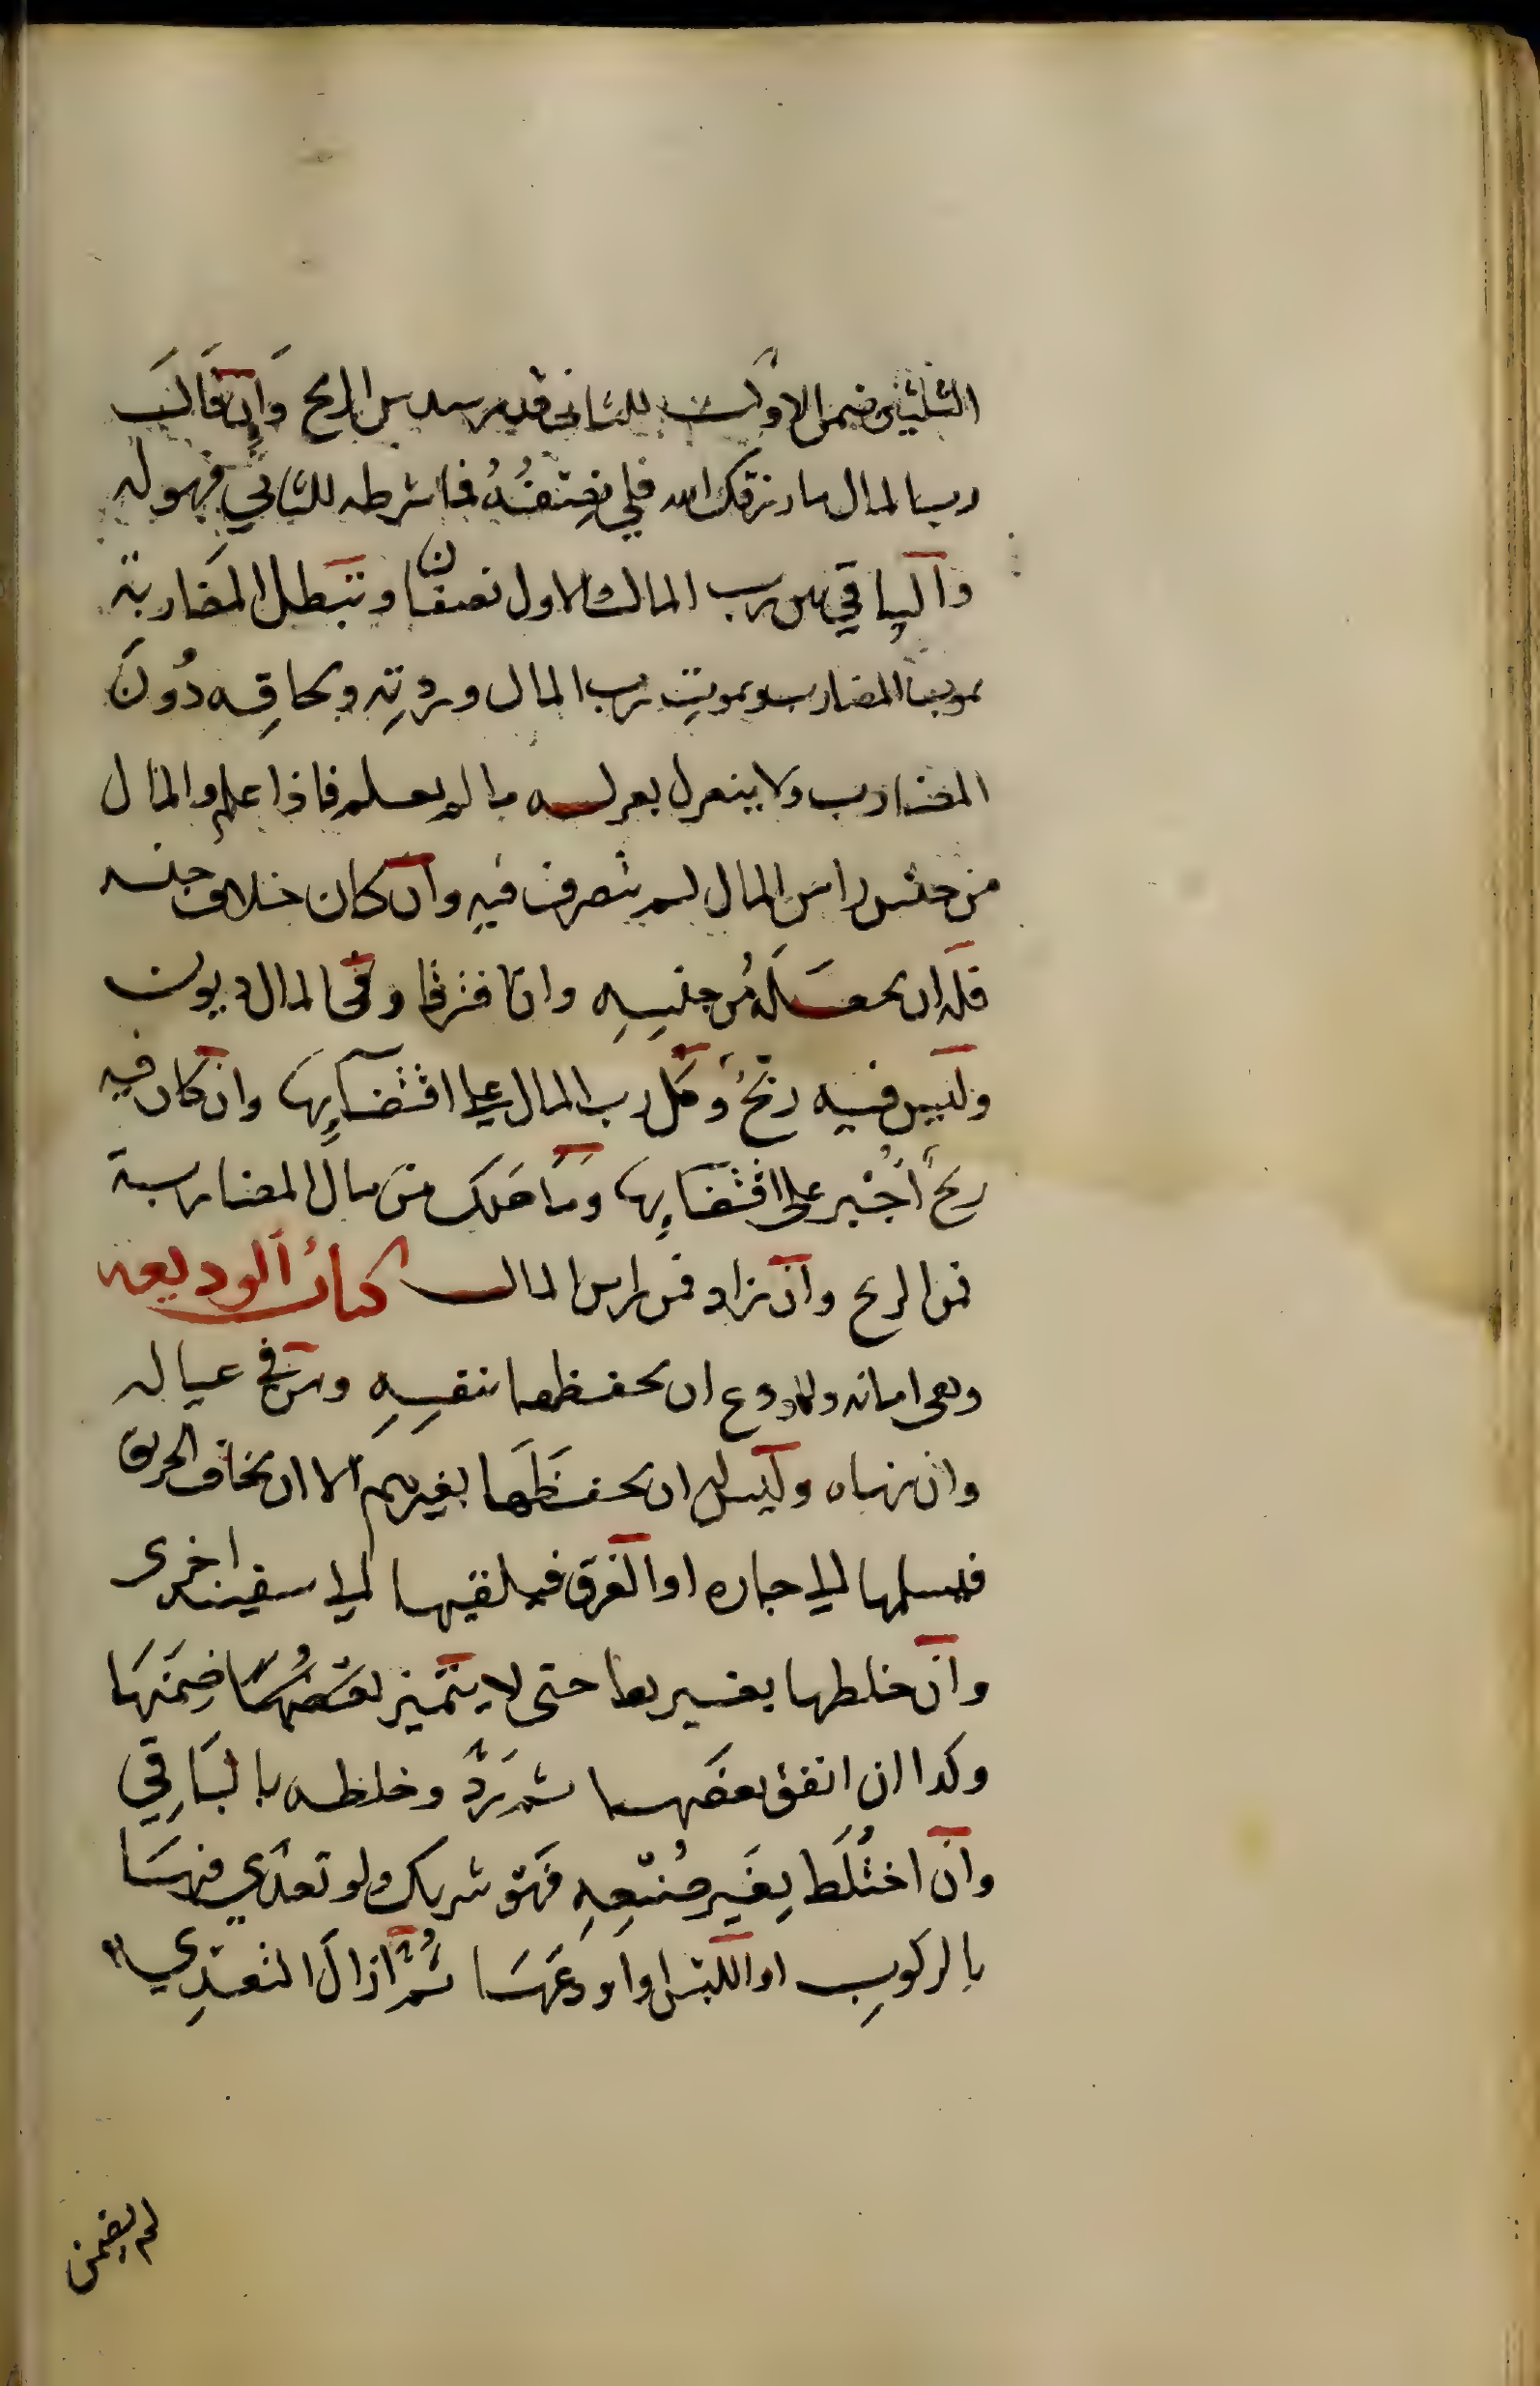 الثلثين ضمن الاول للثانى قدر سدس الربح وَاِن قَالَ
رب المال ما رزقك الله فلي نِصْفُهُ فما شرطه للثاني فهو له
والباقي بين رب المال والاول نصفان وتبطل المضاربة
بموت المضارب وبموتِ رب المال وردتِهِ ولحاقِه دُونَ
المضارب ولا ينعزل بعزله ما لم يعلم فاذا علم والمال
من جنس راس المال لم يتصرف فيهِ وان كان خلاف جنسه
فله ان يجعَلَهُ من جنسِهِ وان افترقا وفى المال ديون
وليس فيه ربحٌ وكل رب المال على اقتضَآئِها وان كان فيه
ربحٌ اُجْبر على اقتضائِها وَمَا هَلك من مال المضاربة
فمن الربح وان زاد فمن راس المال كتابُ الوديعه
وهى امانه وللمودع ان يحفظها بنفسِهِ ومن في عياله
وان نهاه وليس له ان يحفظَهَا بغيرهم الا ان يخاف الحريق
فيسلمها الى جاره او الغرق فيلقيها الى سفينه اخرى
وان خلطها بغيرها حتى لا يتميز بعضُهَا ضمنَهَا
وكذا ان انفق بعضَها ثم رَدَّ وخلطه بالبَاقِي
وان اختُلَط بِغَير صُنعِهِ فَهوَ شريك ولو تعدّي فيهَا
بالركوبِ او اللبس او اودعَهَا ثُمَّ ازالَ التعدِّي
لم يضمن